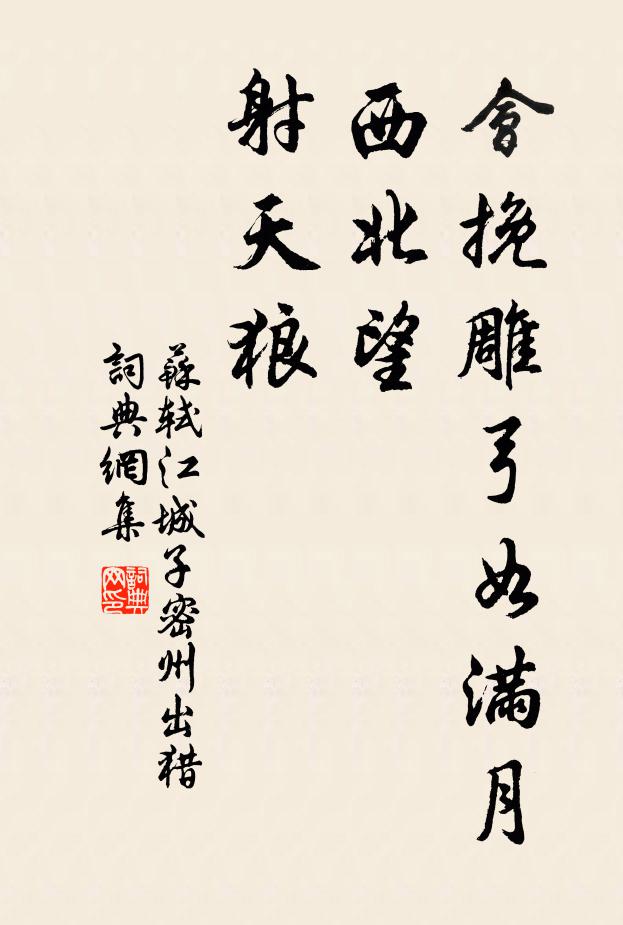 會挽雕弓如滿月
西北望
射天狼
蘇軾江城子密州出猎
詞典網集
詞典网印